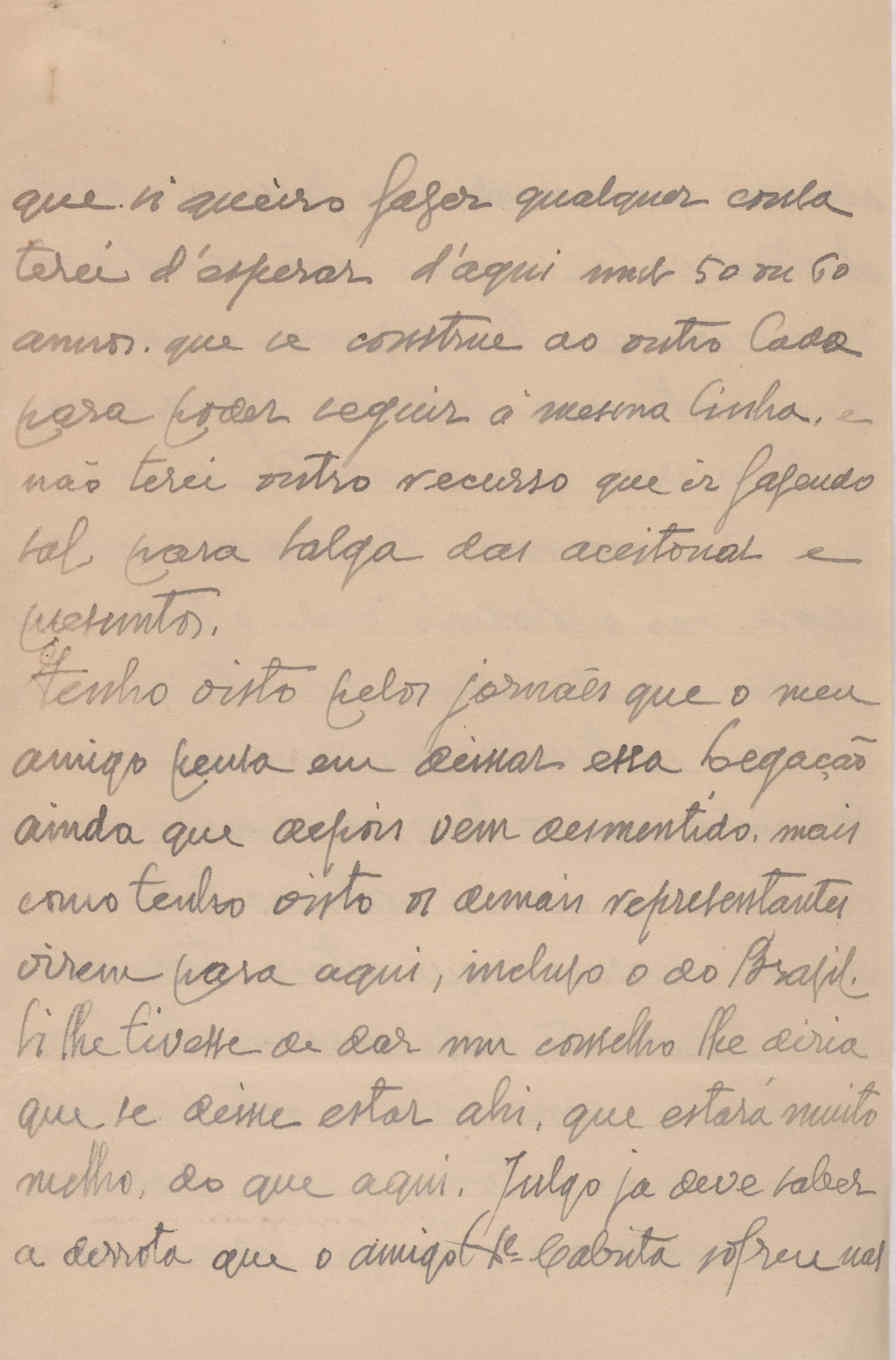 que si quèiro faser qualquer couba
terei d'esperar d'aqui uns 50 ou 60
annos. que se construe ao outro Cada
para poder seguir á mesma linha. e
não terei outro recurso que ir fasendo
sal para salga das aceitonas e
presuntos.
Tenho visto pelos jornaês que o meu
amigo pensa em deixar essa Legação
ainda que depois vem desmentido. mais
como tenho visto os demais representantes
virem para aqui, incluso o do Brasil.
Si lhe tivesse de dar um conselho lhe diria
que se deixe estar ahi, que estará muito
melho, do que aqui. Julgo ja deve saber
a derrota que o amigo Cabrita sofreu nas